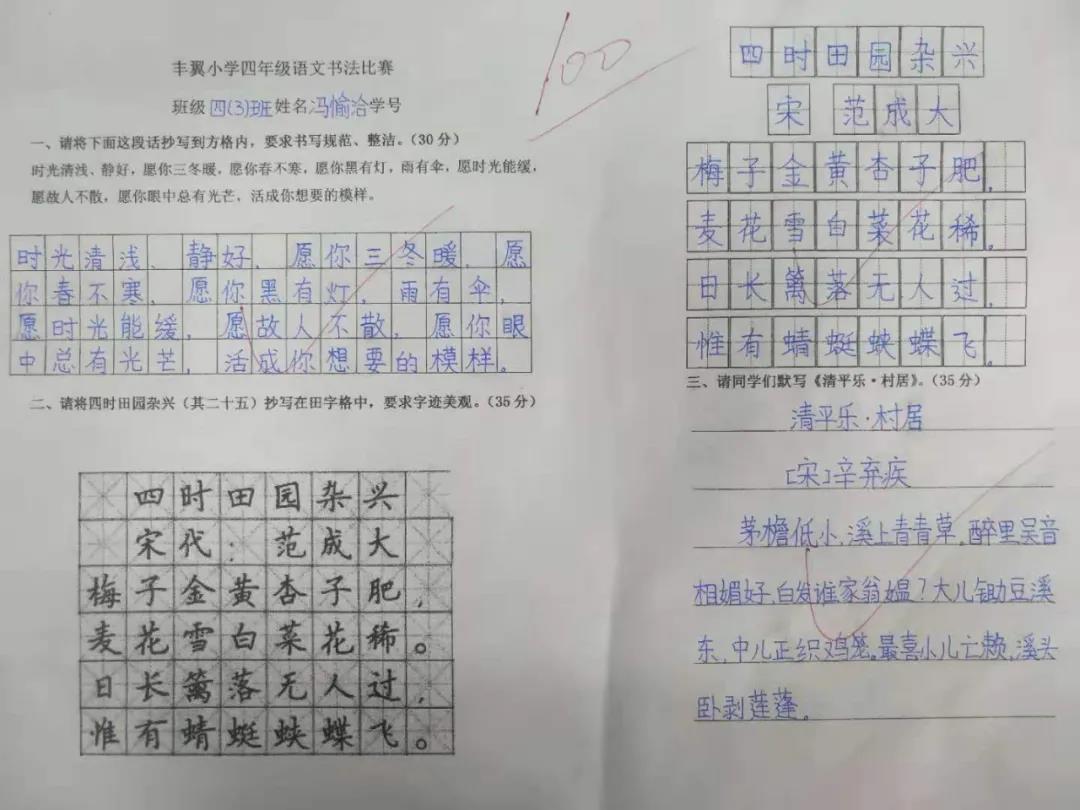 丰翼小学四年级语文书法比赛
班级 四(3)班 姓名 冯愉洽 学号
一、请将下面这段话抄写到方格内，要求书写规范、整洁。（30分）
时光清浅、静好，愿你三冬暖，愿你春不寒，愿你黑有灯，雨有伞，愿时光能缓，
愿故人不散，愿你眼中总有光芒，活成你想要的模样。
时光清浅、静好，愿你三冬暖，愿
你春不寒，愿你黑有灯，雨有伞，
愿时光能缓，愿故人不散，愿你眼
中总有光芒，活成你想要的模样。
二、请将四时田园杂兴（其二十五）抄写在田字格中，要求字迹美观。（35分）
四时田园杂兴
宋代：范成大
梅子金黄杏子肥，
麦花雪白菜花稀。
日长篱落无人过，
惟有蜻蜓蛱蝶飞。
100
四时田园杂兴
宋 范成大
梅子金黄杏子肥，
麦花雪白菜花稀。
日长篱落无人过，
惟有蜻蜓蛱蝶飞。
三、请同学们默写《清平乐·村居》。（35分）
清平乐·村居
[宋]辛弃疾
茅檐低小，溪上青青草，醉里吴音
相媚好，白发谁家翁媪？大儿锄豆溪
东，中儿正织鸡笼。最喜小儿亡赖，溪头
卧剥莲蓬。